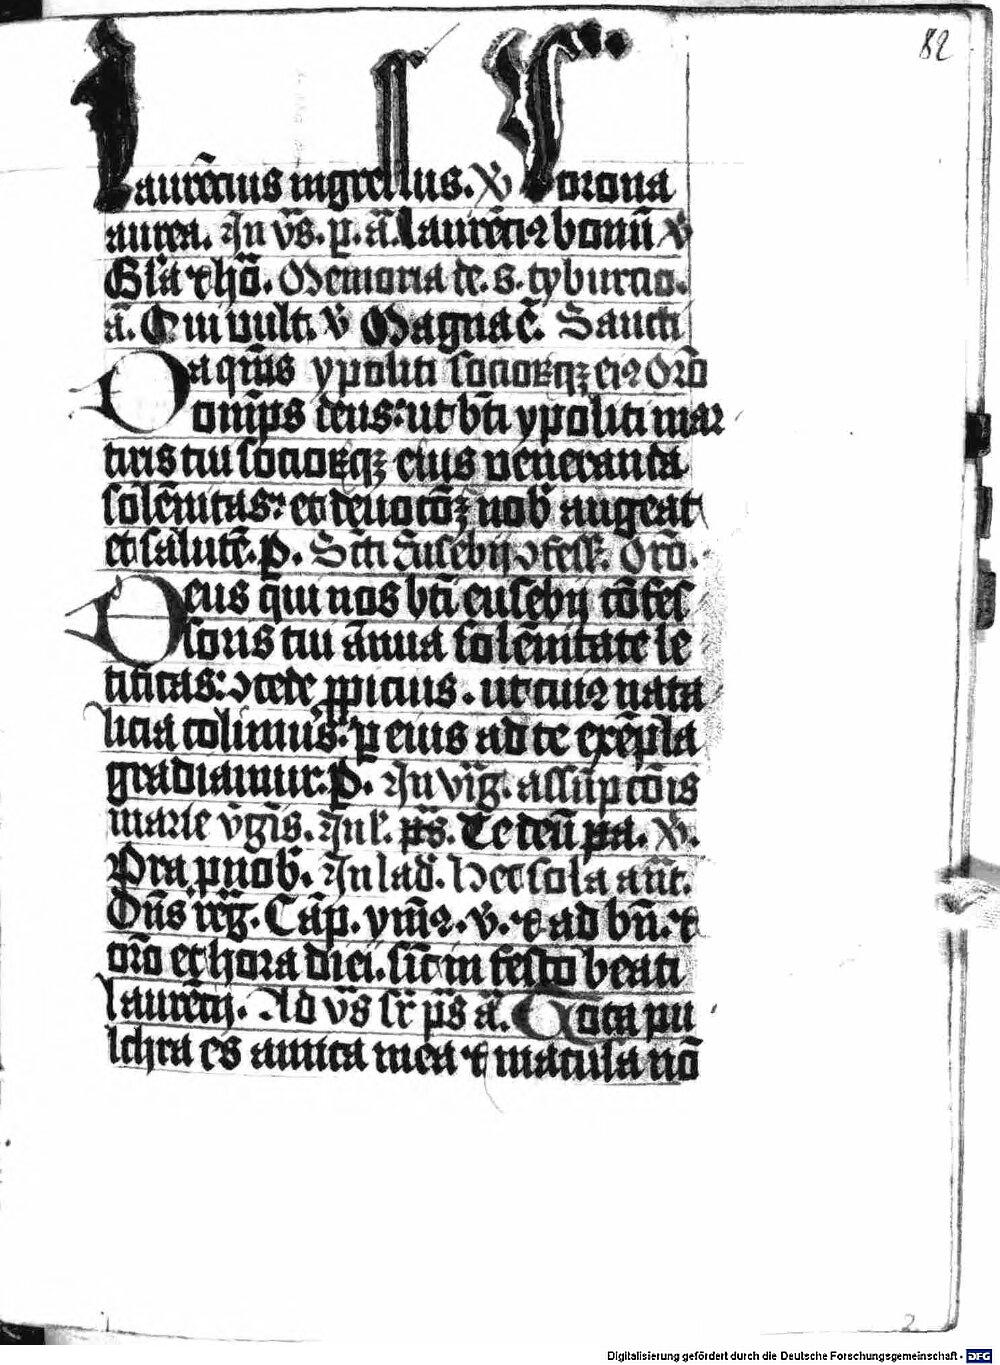 82
laurēcius ingressus. V̄ Corona
aurea. In vs̄. p. ā. Laurēci9 bonū V̄
Gl̄a ⁊ hō. Memoria de. s. tyburcio.
ā. Qui vult. V̄ Magna ē. Sancti
Da qs̄ ypoliti socioꝝqꝫ ei9 Orō
omīps deus: ut bt̄i ypoliti mar
tiris tui socioꝝqꝫ eius veneranda
solēnitas: et deuotōꝫ nob̄ augeat
et salutē. p̄. Sct̄i Eusebij ↄfess̄. Orō.
Deus qui nos bt̄i eusebij cōfes
soris tui ānua solēnitate le
tificas: ↄcede ꝓpicius. ut cui9 nata
licia colimus: ꝑ eius ad te exēpla
gradiamur. p̄. In viḡ. assūpcōis
marie vḡīs. In l̄. ps̄. Te deū pa. V̄.
Ora p nob̄. In lad̄. Hec sola ant̄.
Dn̄s reḡ. Cāp. ym̄9. v̄. ⁊ ad bn̄. ⁊
orō et hora diei. sīt in festo beati
laurētij. Ad vs̄ sr̄ ps̄ ā. Tota pu
lchra es amica mea ⁊ macula nō
Digitalisierung gefördert durch die Deutsche Forschungsgemeinschaft - DFG